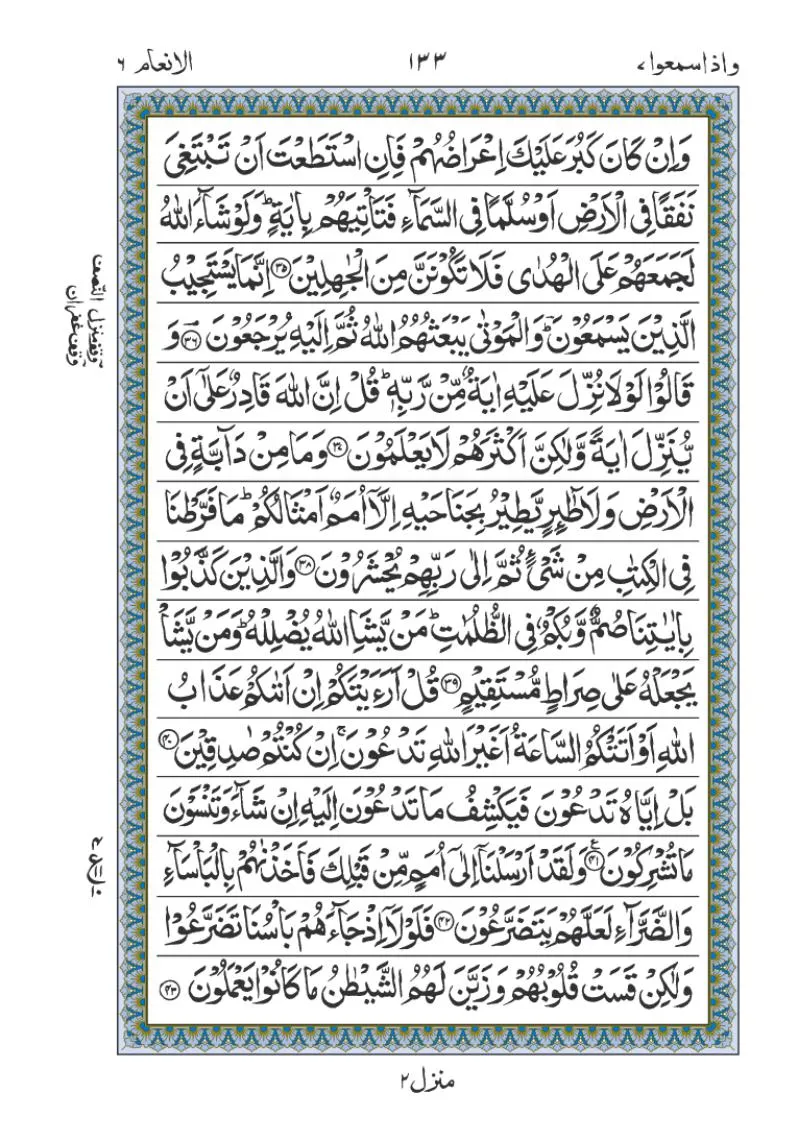 واذا سمعوا ۷ ۱۳۳ الانعام ۶
وَاِنْ كَانَ كَبُرَ عَلَيْكَ اِعْرَاضُهُمْ فَاِنِ اسْتَطَعْتَ اَنْ تَبْتَغِىَ
نَفَقًا فِى الْاَرْضِ اَوْ سُلَّمًا فِى السَّمَآءِ فَتَاْتِيَهُمْ بِاٰيَةٍ ؕ وَلَوْ شَآءَ اللّٰهُ
لَجَمَعَهُمْ عَلَى الْهُدٰى فَلَا تَكُوْنَنَّ مِنَ الْجٰهِلِيْنَ ۝۳۵ اِنَّمَا يَسْتَجِيْبُ
الَّذِيْنَ يَسْمَعُوْنَ ؕ وَالْمَوْتٰى يَبْعَثُهُمُ اللّٰهُ ثُمَّ اِلَيْهِ يُرْجَعُوْنَ ۝۳۶ وَ
قَالُوْا لَوْلَا نُزِّلَ عَلَيْهِ اٰيَةٌ مِّنْ رَّبِّهٖ ؕ قُلْ اِنَّ اللّٰهَ قَادِرٌ عَلٰٓى اَنْ
يُّنَزِّلَ اٰيَةً وَّلٰكِنَّ اَكْثَرَهُمْ لَا يَعْلَمُوْنَ ۝۳۷ وَمَا مِنْ دَآبَّةٍ فِى
الْاَرْضِ وَلَا طٰٓئِرٍ يَّطِيْرُ بِجَنَاحَيْهِ اِلَّاۤ اُمَمٌ اَمْثَالُكُمْ ؕ مَا فَرَّطْنَا
فِى الْكِتٰبِ مِنْ شَىْءٍ ثُمَّ اِلٰى رَبِّهِمْ يُحْشَرُوْنَ ۝۳۸ وَالَّذِيْنَ كَذَّبُوْا
بِاٰيٰتِنَا صُمٌّ وَّبُكْمٌ فِى الظُّلُمٰتِ ؕ مَنْ يَّشَاِ اللّٰهُ يُضْلِلْهُ ؕ وَمَنْ يَّشَاْ
يَجْعَلْهُ عَلٰى صِرَاطٍ مُّسْتَقِيْمٍ ۝۳۹ قُلْ اَرَءَيْتَكُمْ اِنْ اَتٰىكُمْ عَذَابُ
اللّٰهِ اَوْ اَتَتْكُمُ السَّاعَةُ اَغَيْرَ اللّٰهِ تَدْعُوْنَ ۚ اِنْ كُنْتُمْ صٰدِقِيْنَ ۝۴۰
بَلْ اِيَّاهُ تَدْعُوْنَ فَيَكْشِفُ مَا تَدْعُوْنَ اِلَيْهِ اِنْ شَآءَ وَتَنْسَوْنَ
مَا تُشْرِكُوْنَ ۝۴۱ وَلَقَدْ اَرْسَلْنَاۤ اِلٰٓى اُمَمٍ مِّنْ قَبْلِكَ فَاَخَذْنٰهُمْ بِالْبَاْسَآءِ
وَالضَّرَّآءِ لَعَلَّهُمْ يَتَضَرَّعُوْنَ ۝۴۲ فَلَوْلَاۤ اِذْ جَآءَهُمْ بَاْسُنَا تَضَرَّعُوْا
وَلٰكِنْ قَسَتْ قُلُوْبُهُمْ وَزَيَّنَ لَهُمُ الشَّيْطٰنُ مَا كَانُوْا يَعْمَلُوْنَ ۝۴۳
النصف
وقف منزل
وقف غفران
منزل ۲